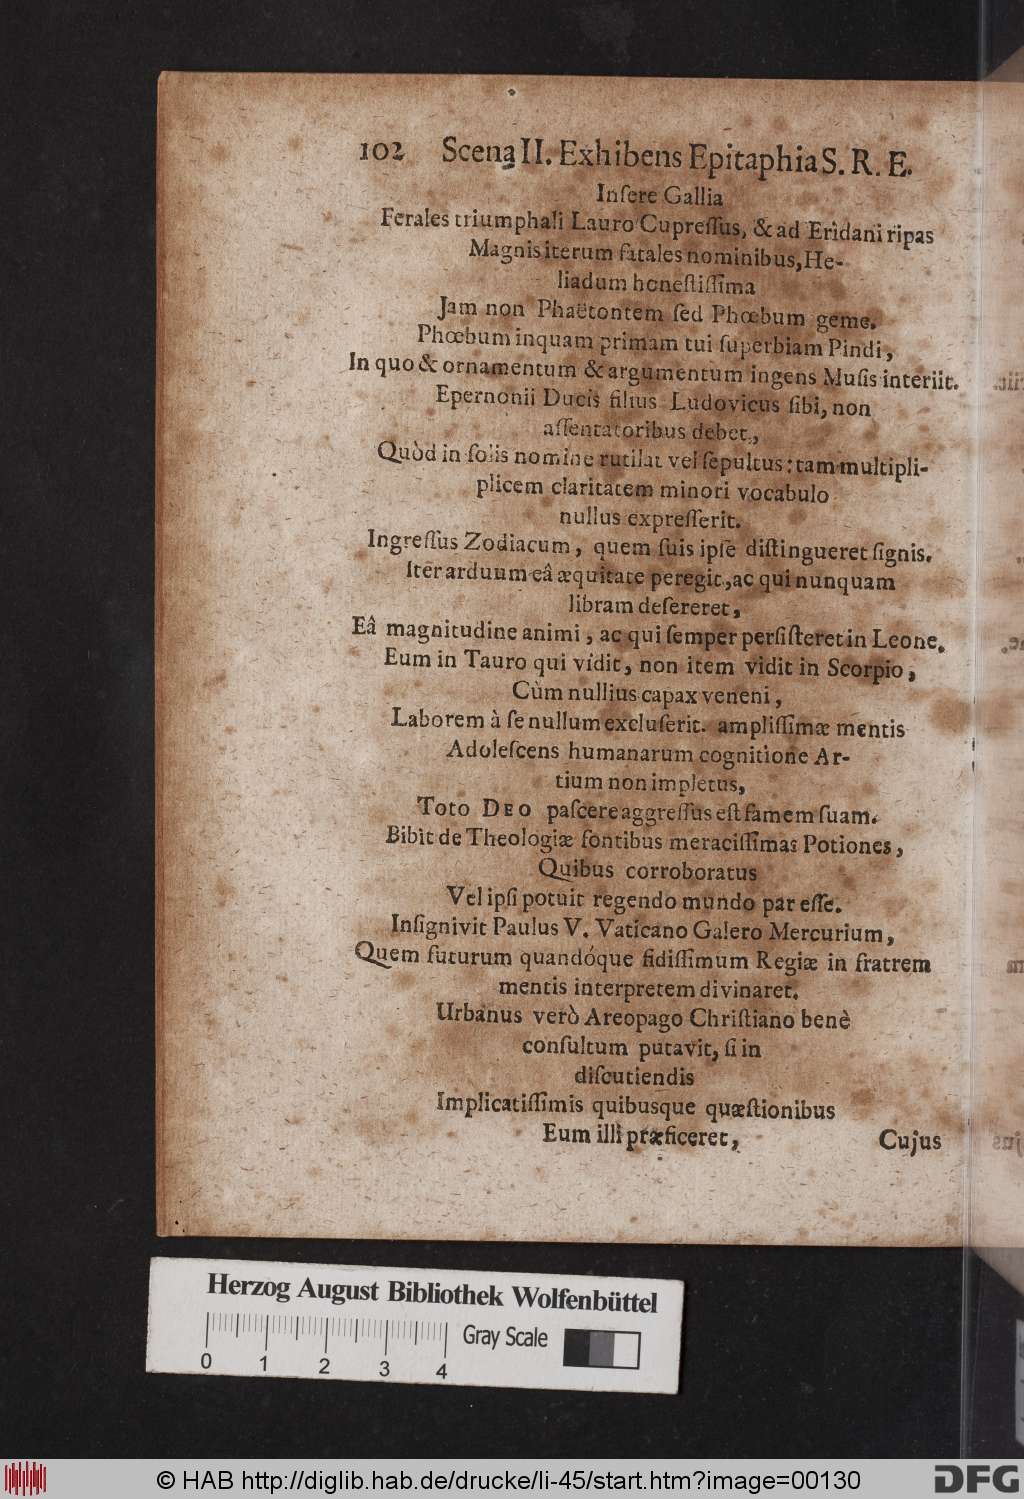 102 Scena II. Exhibens Epitaphia S. R. E.
Inſere Gallia
Ferales triumphali Lauro Cupreſſus, & ad Erìdani ripas
Magnis iterum fatales nominibus, He-
liadum honeſtiſſima
Jam non Phaëtontem ſed Phœbum geme.
Phœbum inquam primam tui ſuperbiam Pindi,
In quo & ornamentum & argumentum ingens Muſis interiit.
Epernonii Ducis filius Ludovicus ſibi, non
aſſentatoribus debet,
Quòd in ſolis nomine rutilat vel ſepultus: tam multipli-
plicem claritatem minori vocabulo
nullus expreſſerit.
Ingreſſus Zodiacum, quem ſuis ipſe diſtingueret ſignis.
Iter arduum eâ æquitate peregit, ac qui nunquam
libram deſereret,
Eâ magnitudine animi, ac qui ſemper perſiſteret in Leone.
Eum in Tauro qui vidit, non item vidit in Scorpio,
Cùm nullius capax veneni,
Laborem à ſe nullum excluſerit. ampliſſimæ mentis
Adoleſcens humanarum cognitione Ar-
tium non impletus,
Toto DEO paſcere aggreſſus eſt famem ſuam.
Bibit de Theologiæ fontibus meraciſſimas Potiones,
Quibus corroboratus
Vel ipſi potuit regendo mundo par eſſe.
Inſignivit Paulus V. Vaticano Galero Mercurium,
Quem futurum quandóque fidiſſimum Regiæ in fratrem
mentis interpretem divinaret.
Urbanus verò Areopago Chriſtiano benè
conſultum putavit, ſi in
diſcutiendis
Implicatiſſimis quibusque quæſtionibus
Eum illi præficeret,
Cujus
Herzog August Bibliothek Wolfenbüttel
Gray Scale
0 1 2 3 4
© HAB http://diglib.hab.de/drucke/li-45/start.htm?image=00130
DFG